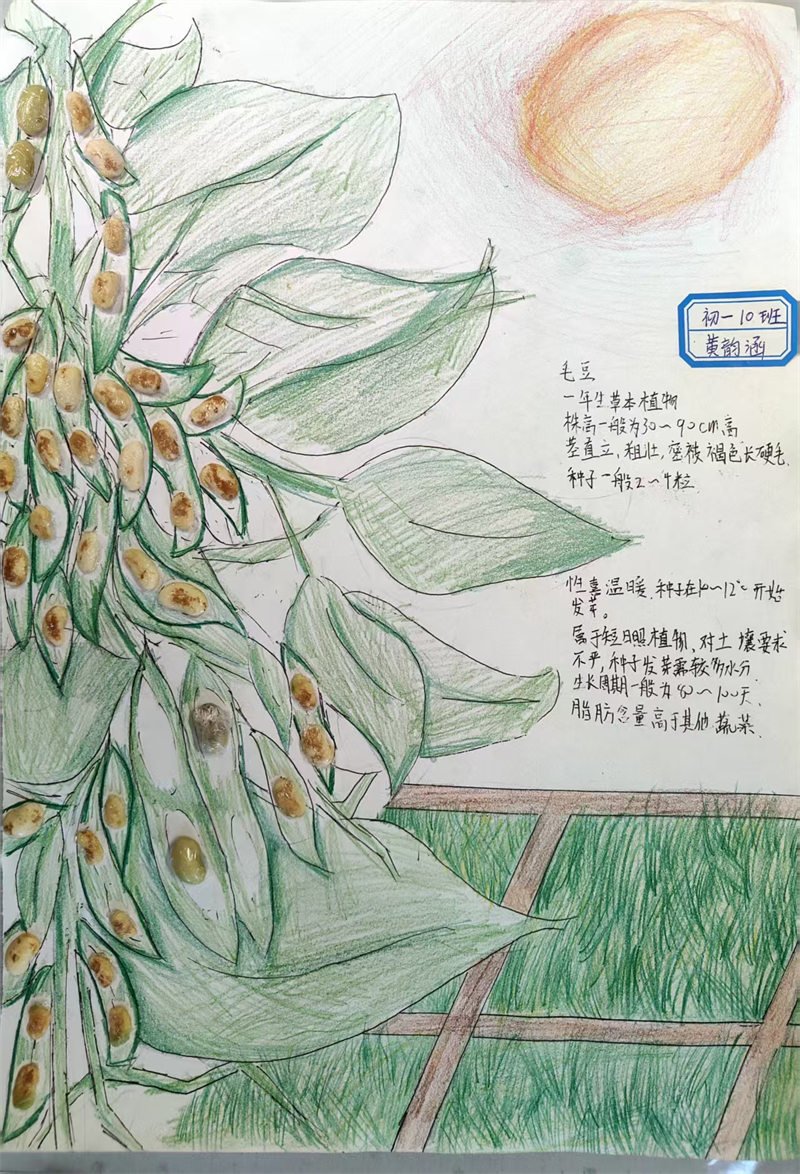 初一10班
黄韵涵
毛豆
一年生草本植物
株高一般为30～90cm高
茎直立,粗壮,密被褐色长硬毛.
种子一般2～4粒.
性喜温暖.种子在10～12℃开始
发芽。
属于短日照植物,对土壤要求
不严,种子发芽需较多水分
生长周期一般为80～100天.
脂肪含量高于其他蔬菜.